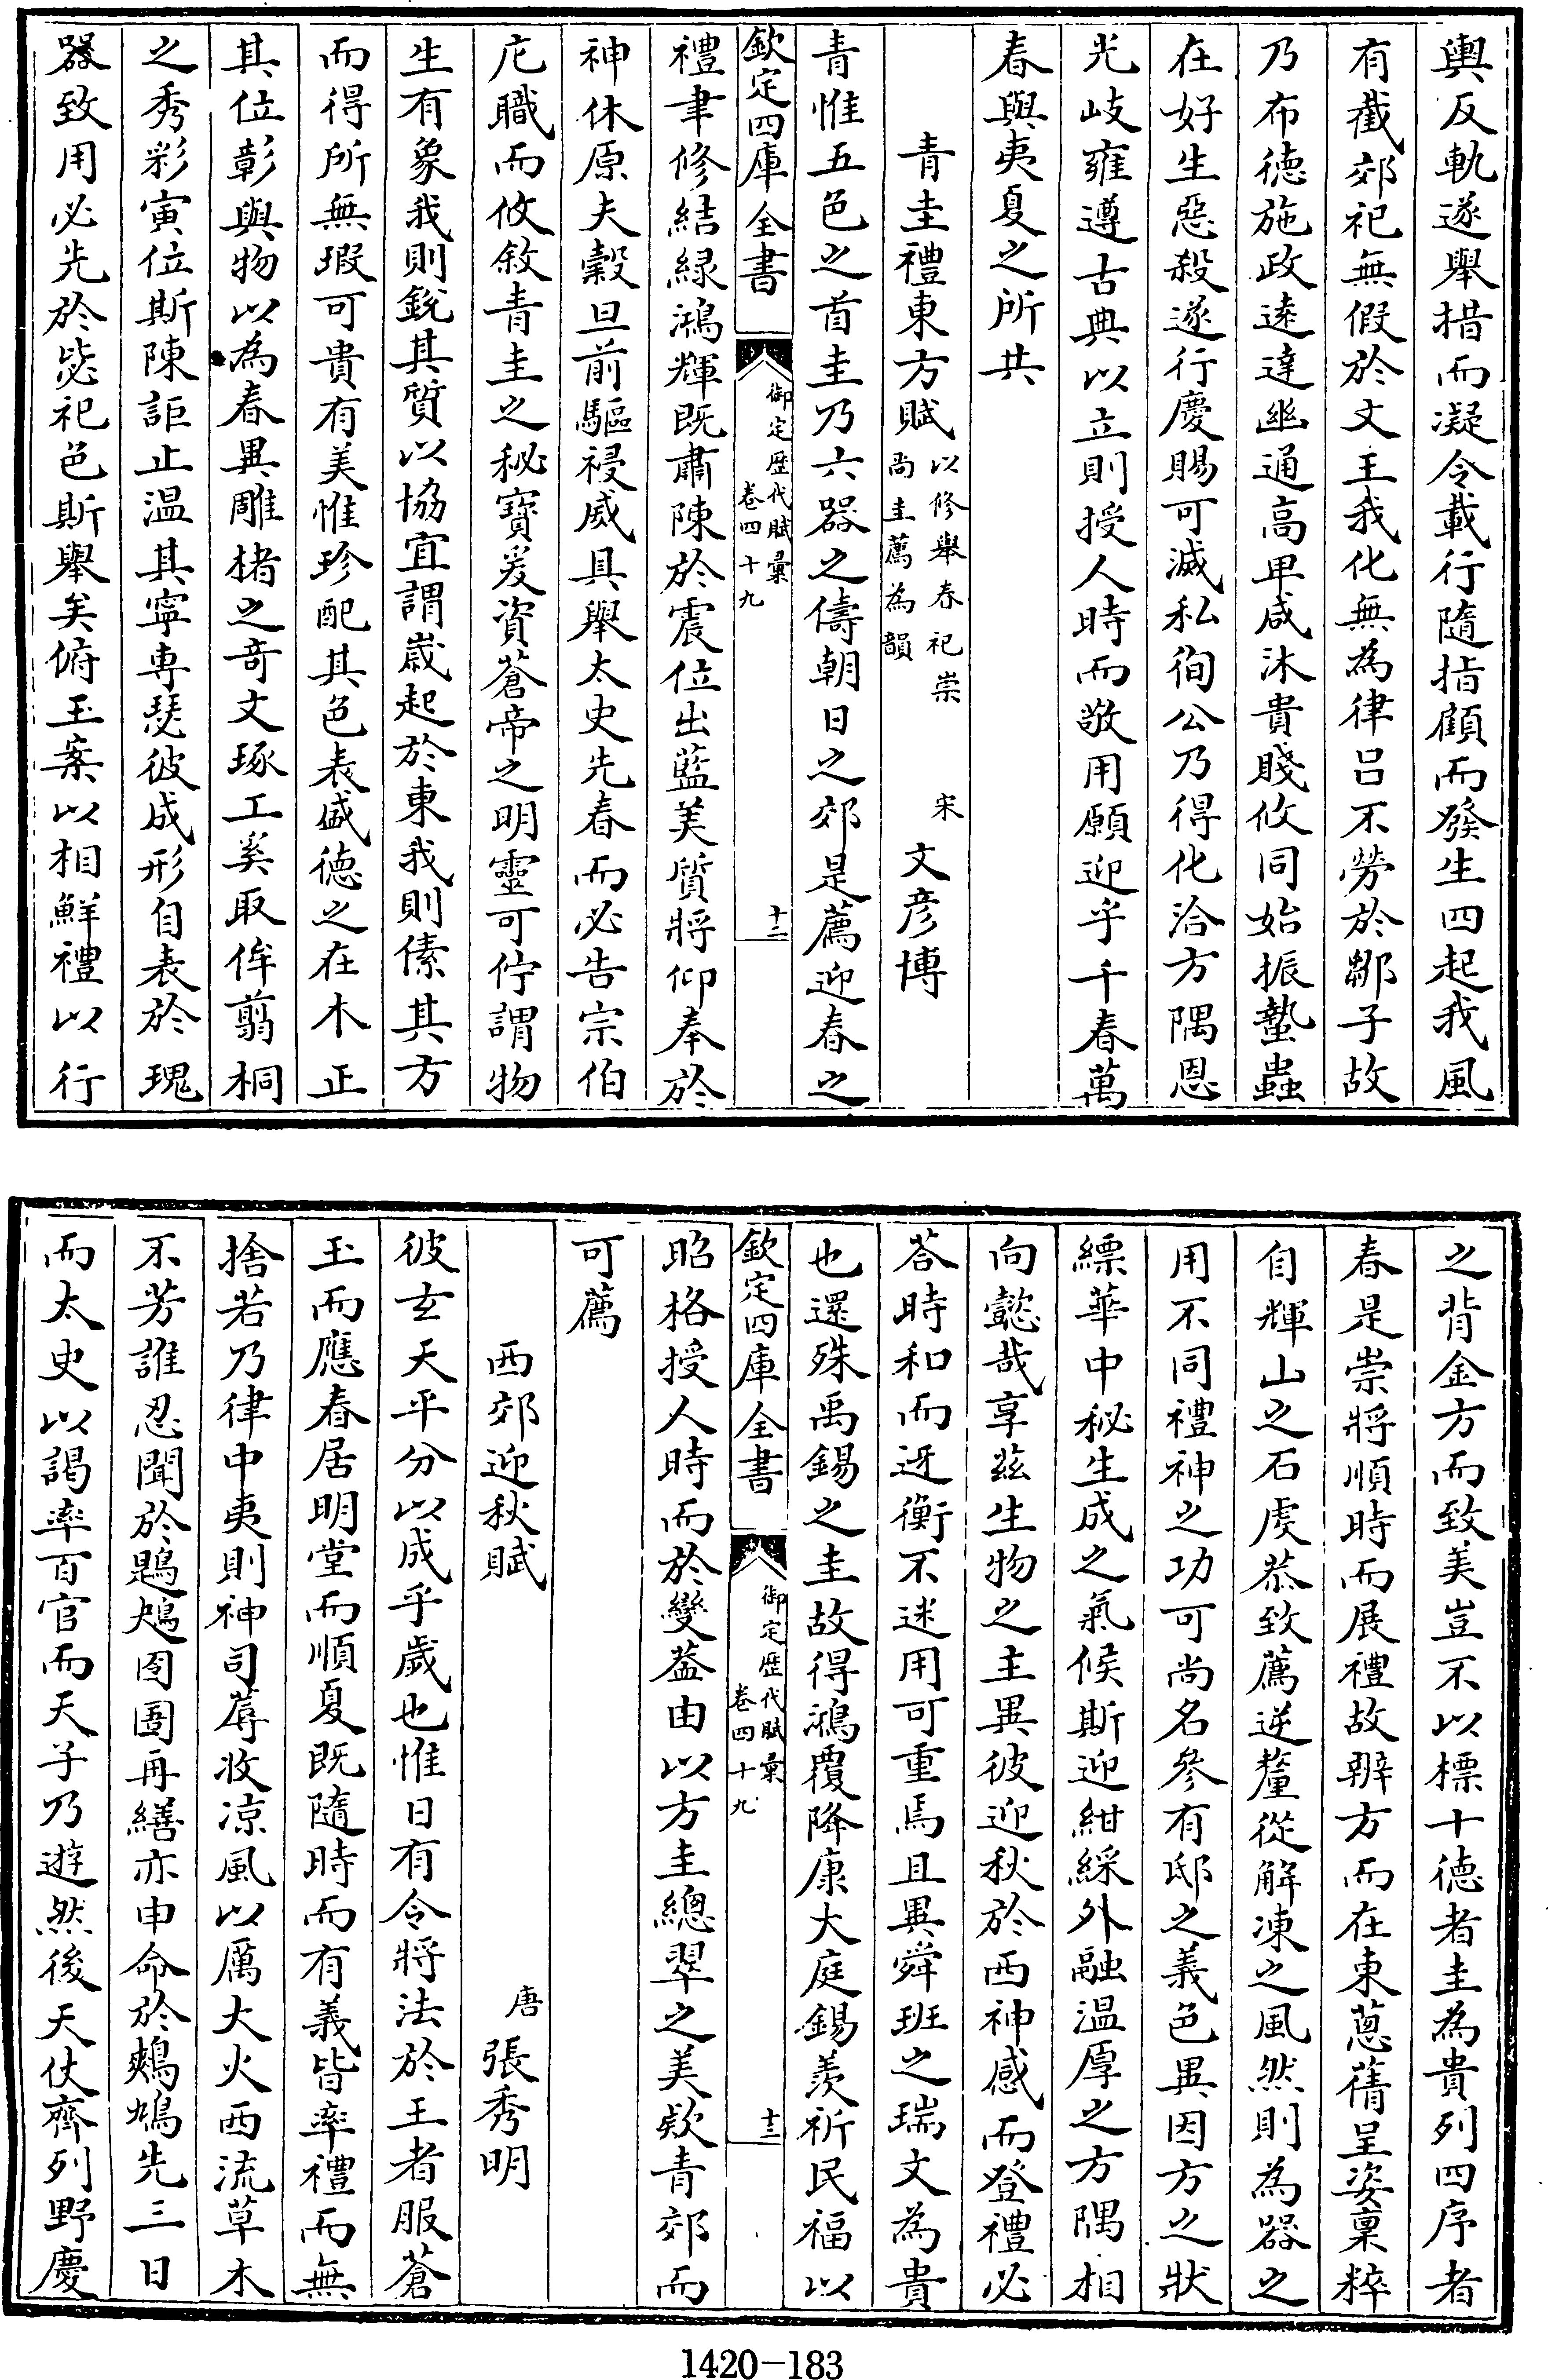 輿反軌遂舉措而凝令載行隨指顧而發生四起我風
有截郊祀無假於文王我化無為律呂不勞於鄒子故
乃布德施政遠達幽通高卑咸沐貴賤攸同始振蟄蟲
在好生惡殺遂行慶賜可滅私徇公乃得化洽方隅恩
光岐雍遵古典以立則授人時而敬用願迎乎千春萬
春與夷夏之所共
青圭禮東方賦以修舉春祀崇尚圭薦為韻 宋 文彦博
青惟五色之首圭乃六器之儔朝日之郊是薦迎春之
欽定四庫全書 御定歷代賦彙卷四十九 十二
禮聿修結緑鴻輝既肅陳於震位出藍美質將仰奉於
神休原夫穀旦前驅祲威具舉太史先春而必告宗伯
庀職而攸敘青圭之秘寶爰資蒼帝之明靈可佇謂物
生有象我則銳其質以協宜謂歲起於東我則傃其方
而得所無瑕可貴有美惟珍配其色表盛德之在木正
其位彰與物以為春異雕楮之奇文琢工奚取侔翦桐
之秀彩寅位斯陳詎止温其寧專瑟彼成形自表於瑰
器致用必先於毖祀色斯舉矣俯玉案以相鮮禮以行
之背金方而致美豈不以標十德者圭為貴列四序者
春是崇將順時而展禮故辨方而在東蔥蒨呈姿稟粹
自輝山之石虔恭致薦逆釐從解凍之風然則為器之
用不同禮神之功可尚名參有邸之義色異因方之狀
縹華中秘生成之氣候斯迎紺綵外融温厚之方隅相
向懿哉享茲生物之主異彼迎秋於西神感而登禮必
荅時和而迓衡不迷用可重焉且異舜班之瑞文為貴
也還殊禹錫之圭故得鴻覆降康大庭錫羨祈民福以
欽定四庫全書 御定歷代賦彙卷四十九 十三
昭格授人時而於變蓋由以方圭總翠之美欵青郊而
可薦
西郊迎秋賦 唐 張秀明
彼玄天平分以成乎歲也惟日有令將法於王者服蒼
玉而應春居明堂而順夏既隨時而有義皆率禮而無
捨若乃律中夷則神司蓐收凉風以厲大火西流草木
不芳誰忍聞於鶗鴂囹圄再繕亦申命於鷞鳩先三日
而太史以謁率百官而天子乃遊然後天仗齊列野慶
1420-183